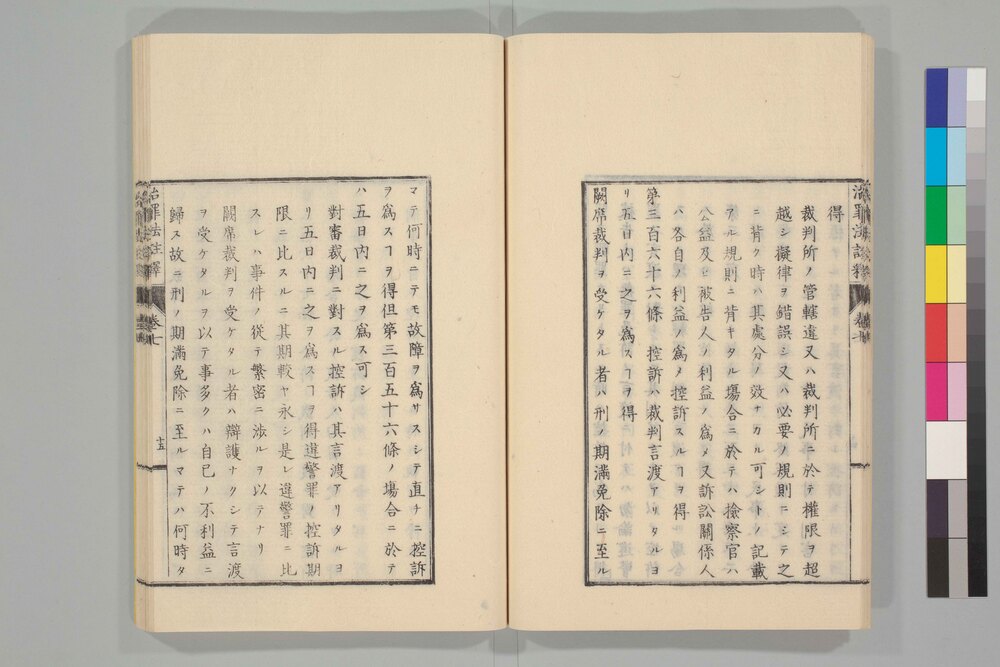 治罪法註釋 卷七
得
裁判所ノ管轄違又ハ裁判所ニ於テ權限ヲ超
越シ擬律ヲ錯誤シ又ハ必要ノ規則ニシテ之
ニ背ク時ハ其處分ノ效ナカル可シトノ記載
アル規則ニ背キタル塲合ニ於テハ撿察官ハ
公益及ヒ被告人ノ利益ノ爲メ又訴訟關係人
ハ各自ノ利益ノ爲メ控訴スルヿヲ得
第三百六十六條 控訴ハ裁判言渡アリタルヨ
リ五日内ニ之ヲ爲スヿヲ得
闕席裁判ヲ受ケタル者ハ刑ノ期滿免除ニ至ル
マテ何時ニテモ故障ヲ爲サスシテ直チニ控訴
ヲ爲スヿヲ得但第三百五十六條ノ塲合ニ於テ
ハ五日内ニ之ヲ爲ス可シ
對審裁判ニ對スル控訴ハ其言渡アリタルヨ
リ五日内ニ之ヲ爲スヿヲ得違警罪ノ控訴期
限ニ比スルニ其期較ヤ永シ是レ違警罪ニ比
スレハ事件ノ從テ繁密ニ渉ルヲ以テナリ
闕席裁判ヲ受ケタル者ハ辯護ナクシテ言渡
ヲ受ケタルヲ以テ事多クハ自已ノ不利益ニ
歸ス故ニ刑ノ期滿免除ニ至ルマテハ何時タ
治罪法註釋 卷七 十五